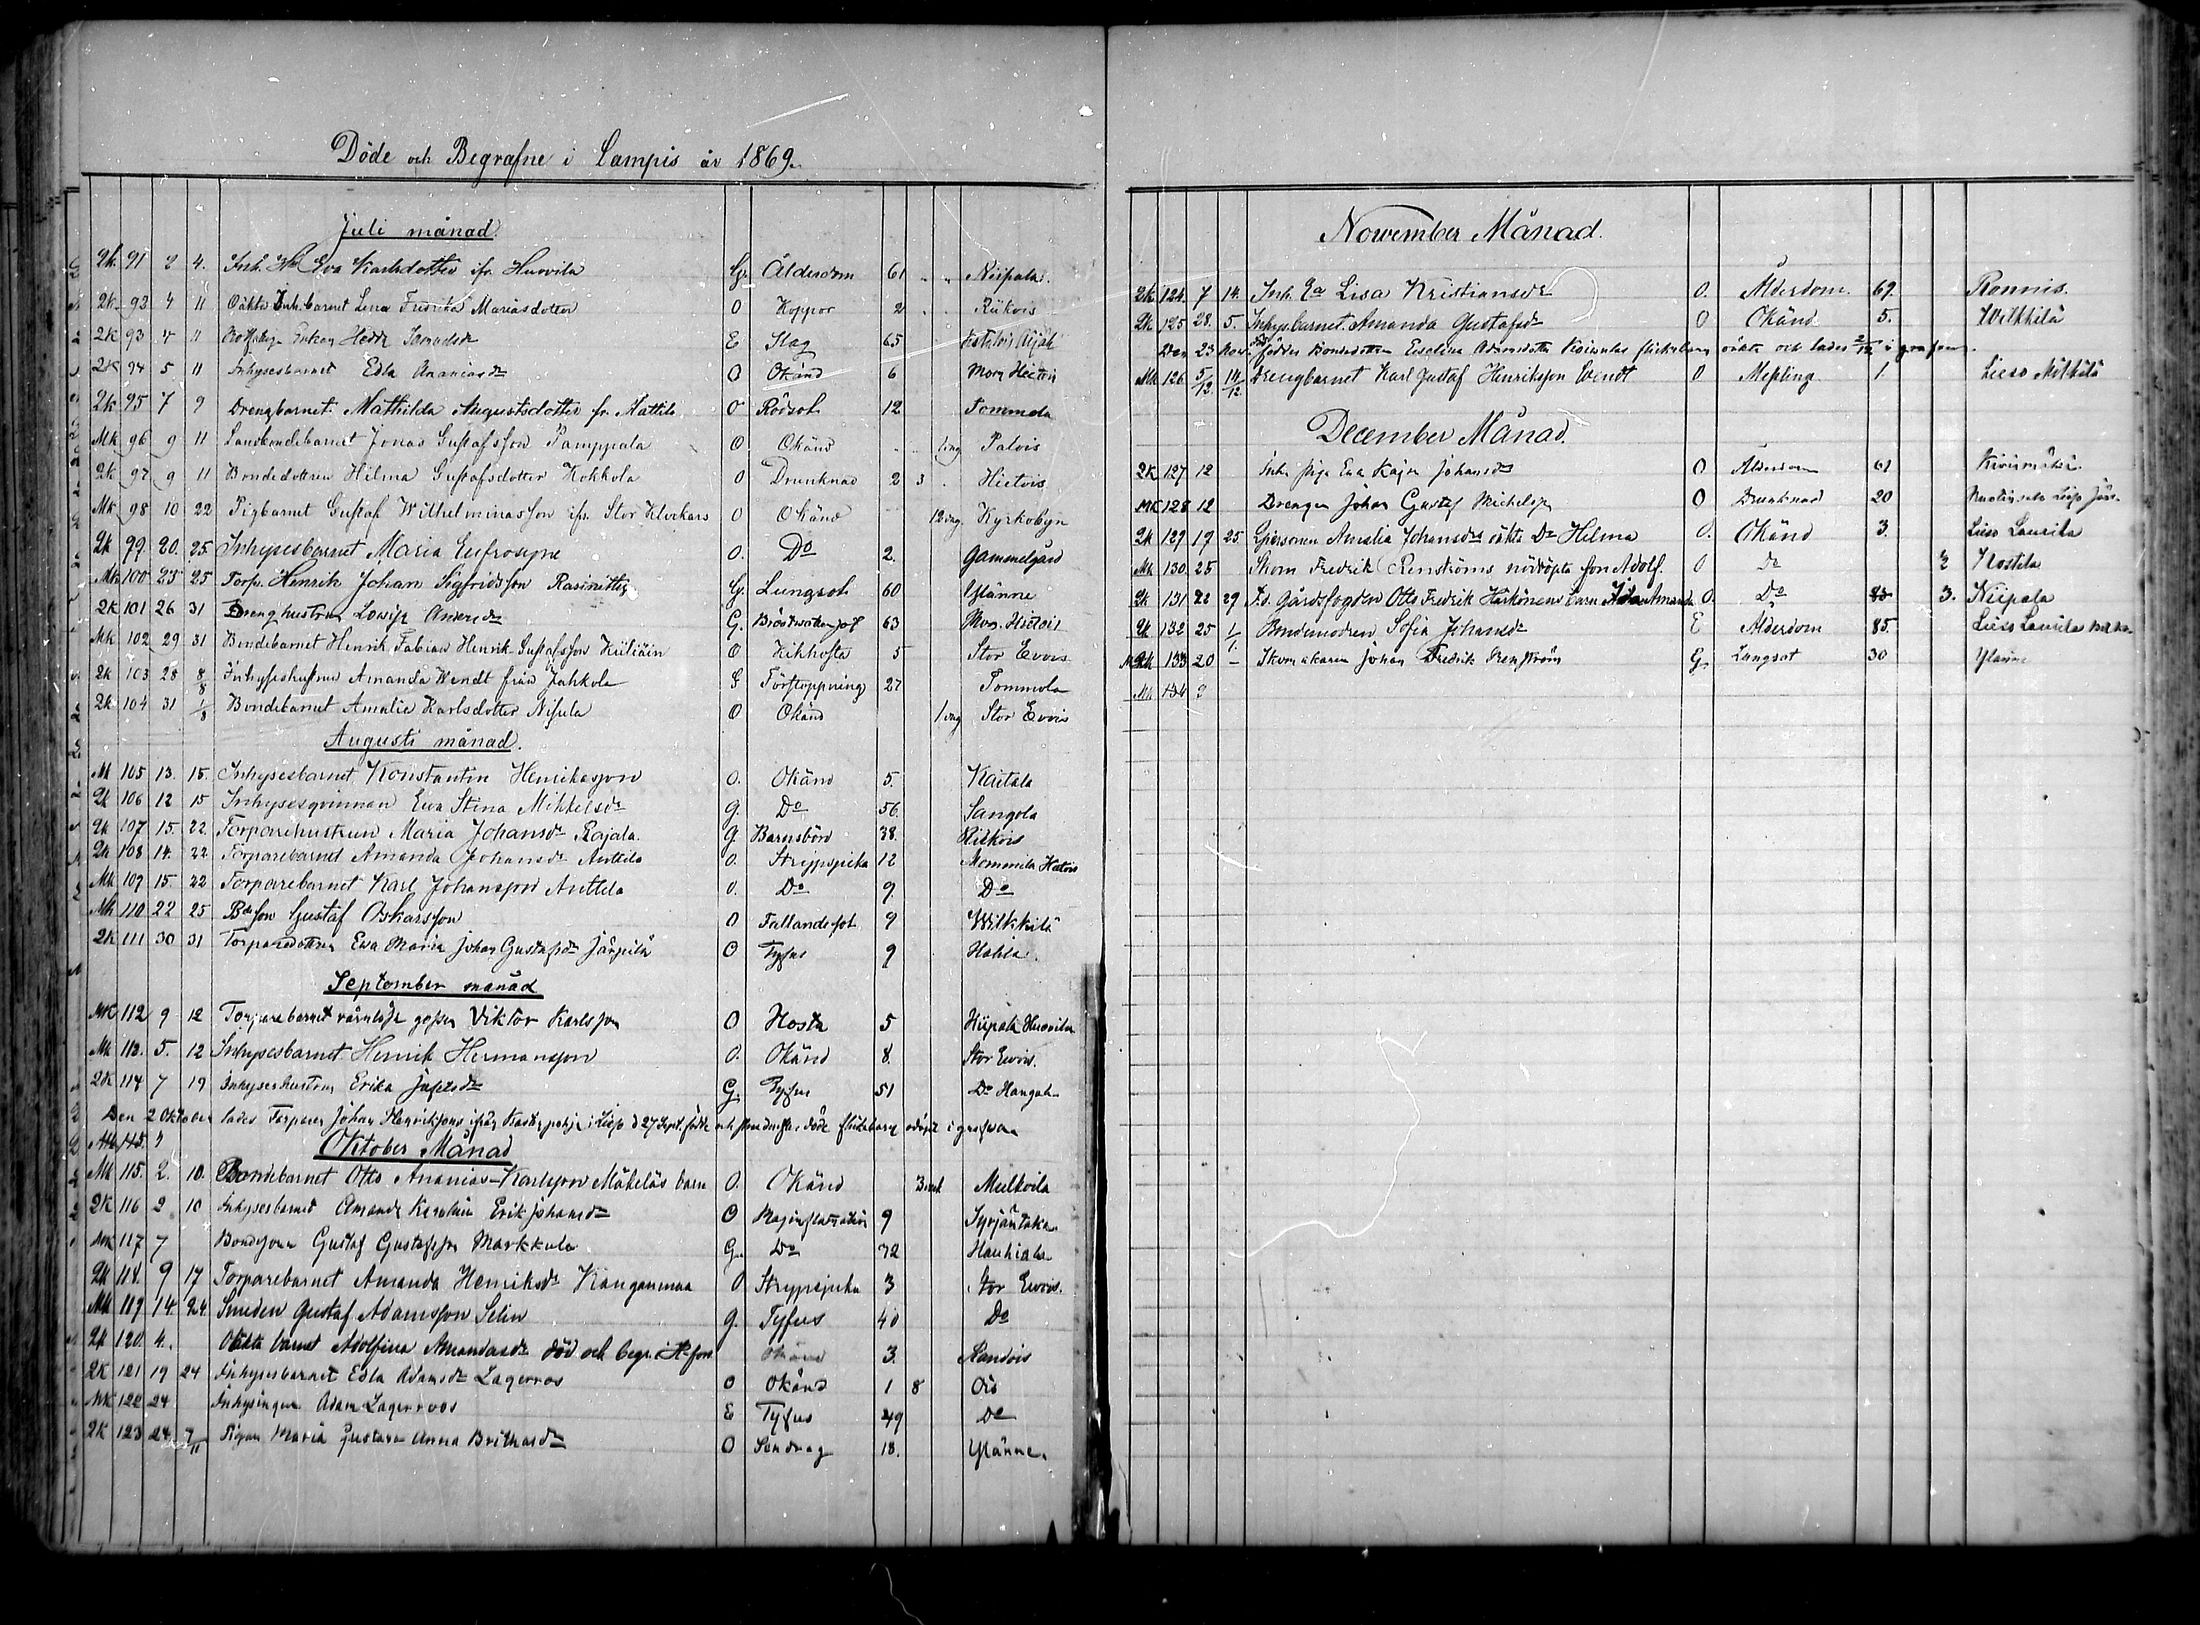 Döde och Begrafne i Lampis år 1869.
Juli månad.
Qk. 91 2 4. Inh. Eva Karlsdotter ifr. Huovila G. Ålderdom 61 Niipala.
2k. 92 4 11 Oäkta Inh. barnet Lena Fredrika Mariasdotter O Koppor 2 Riikois
2K 93 4 11 Enkan Hedda E Slag 65
2K 94 5 11 Inhysesbarnet Edla Ananiasdr O Okänd 6 Mom Hietois
2k 95 7 9 Drengbarnet Mathilda Augustsdotter fr. Mattila O Rödsot 12 Tommola
Mk 96 9 11 Landbondebarnet Jonas Gustafsson Pamppala O Okänd 1 dag Palois
2k 97 9 11 Bondedottren Hilma Gustafsdotter Kokkola O Drunknad 2 3 Hietois
Mk 98 10 22 Pigbarnet Gustaf Wilhelminasson ifr. Stor Klockars O Okänd 12 dag Kyrkobyn
Qk 99. 20. 25. Inhysesbarnet Maria Eufrosyne O. Do 2. Gammelgård
Mk 100 23 25 Torp. Henrik Johan Sigfridsson G. Lungsot 60 Ylänne
2k 101 26 31 Drenghustrun Lovisa Andersdr G. 63 Mom. Hietois
Mk 102 29 31 Bondebarnet Henrik Fabian Henrik Gustafsson O Kikhosta 5 Stor Evois
2k 103 28 8/8 Inhyseshustrun Amanda Wendt från Jahkola G Förstoppning 27 Tommola
2k 104 31 1/8 Bondebarnet Amalia Karlsdotter Nisula O Okänd 1 dag Stor Evois
Augusti månad.
Mk 105 13. 15. Inhysesbarnet Konstantin Henriksson O. Okänd 5. Kaitala
Qk 106 12 15 Inhysesqvinnan Ewa Stina Mikkelsdr G. Do 56. Sangola
Qk 107 15. 22. Torparehustrun Maria Johansdr Rajala. G. Barnsbörd 38. Riikois
Qk 108 14. 22. Torparebarnet Amanda Johansdr Anttila O. Strypsjuka 12 Mommila Hietois
Mk 109 15. 22 Torparebarnet Karl Johansson Anttila O. Do 9. Do
Mk 110 22 25 Bdeson Gustaf Oskarsson O Fallandesot 9 Wilkkilä
2K 111 30 31 Torparedottren Ewa Maria Johan Gustafsdr Järpilä O Tyfus 9
September månad
MK 112 9 12 Torparebarnet gossen Viktor Karlsson O Hosta 5 Niipala Huovila
Mk 113. 5. 12 Inhysesbarnet Henrik Hermansson O. Okänd 8. Stor Evois.
2K 114 7 19 Inhyseshustrun Erika G. Tyfus 51 Do
Den 2 Oktober lades Torparen Johan Henrikssons ifrån i d 27 Sept. födde och döde flickebarn odöpt i grafven
Mk 115 ?
Oktober Månad
Mk 115. 2. 10. Bondebarnet Otto Ananias Karlsson Mäkeläs barn O. Okänd Mulkoila
2K 116 2 10 Inhysesbarnet Amanda Karolina Erik Johansdr O 9 Syrjäntaka
Mk 117 7 Bondesonen Gustaf Gustafsson Markkula G. Do 72 Hauhiala
Qk 118. 9 17 Torparebarnet Amanda Henriksdr Kangasmaa O Strypsjuka 3 Stor Evois.
Mk 119 14 24. Smeden Gustaf Adamsson Selin G. Tyfus 40 Do
Qk 120. 4. Oäkta barnet Adolfina Amandasdr död och begr. i H:fors Okänd 3. Kandois
2K 121 19 24 Inhysesbarnet Edla Adamsdr Lagerroos O Okänd 1 8
MK 122 24 Inhysingen Adam Lagerroos E Tyfus 49 Do
2K 123 24 7/11 Pigan Maria Gustava Anna Britasdr O 18. Ylänne.
November Månad.
2k 124. 7 14. Inh. Qa Lisa Kristiansdr O. Ålderdom. 69. Ronnis.
Qk 125 28. 5. Inhys.barnet Amanda Gustafsdr O Okänd 5. Wilkkilä
Den 23 Nov. föddes Bondedottren Evelina Adamsdotter flickebarn oäkta och lades 2/12 i grafven.
Mk 126 5/12 14/12 Drengbarnet Karl Gustaf Henriksson Wendt O Messling 1 Lieso
December Månad.
2K 127 12 Inh. pigan Eva Kajsa Johansdr O Ålderdom 61
MK 128 12 Drengen Johan Gustaf Michelsson O Drunknad 20
Qk 129 19 25 Amalia Johansdrs oäkta Dr Helma O. Okänd 3. Lieso Laurila
Mk 130. 25 Skom Fredrik Renströms nöddöpta son Adolf. O Do 2 Kostila
Qk 131 22 29 F.d. Gårdsfogden Otto Fredrik Härkönens barn Ida Amanda O. Do 3. Niipala
Qk 132 25 1/1. Bondmodren Sofia Johansdr E Ålderdom 85. Lieso Laurila
Mk 133 20 – Skomakaren Johan Fredrik Renström G. Lungsot 30 Ylänne
Mk 134 ?